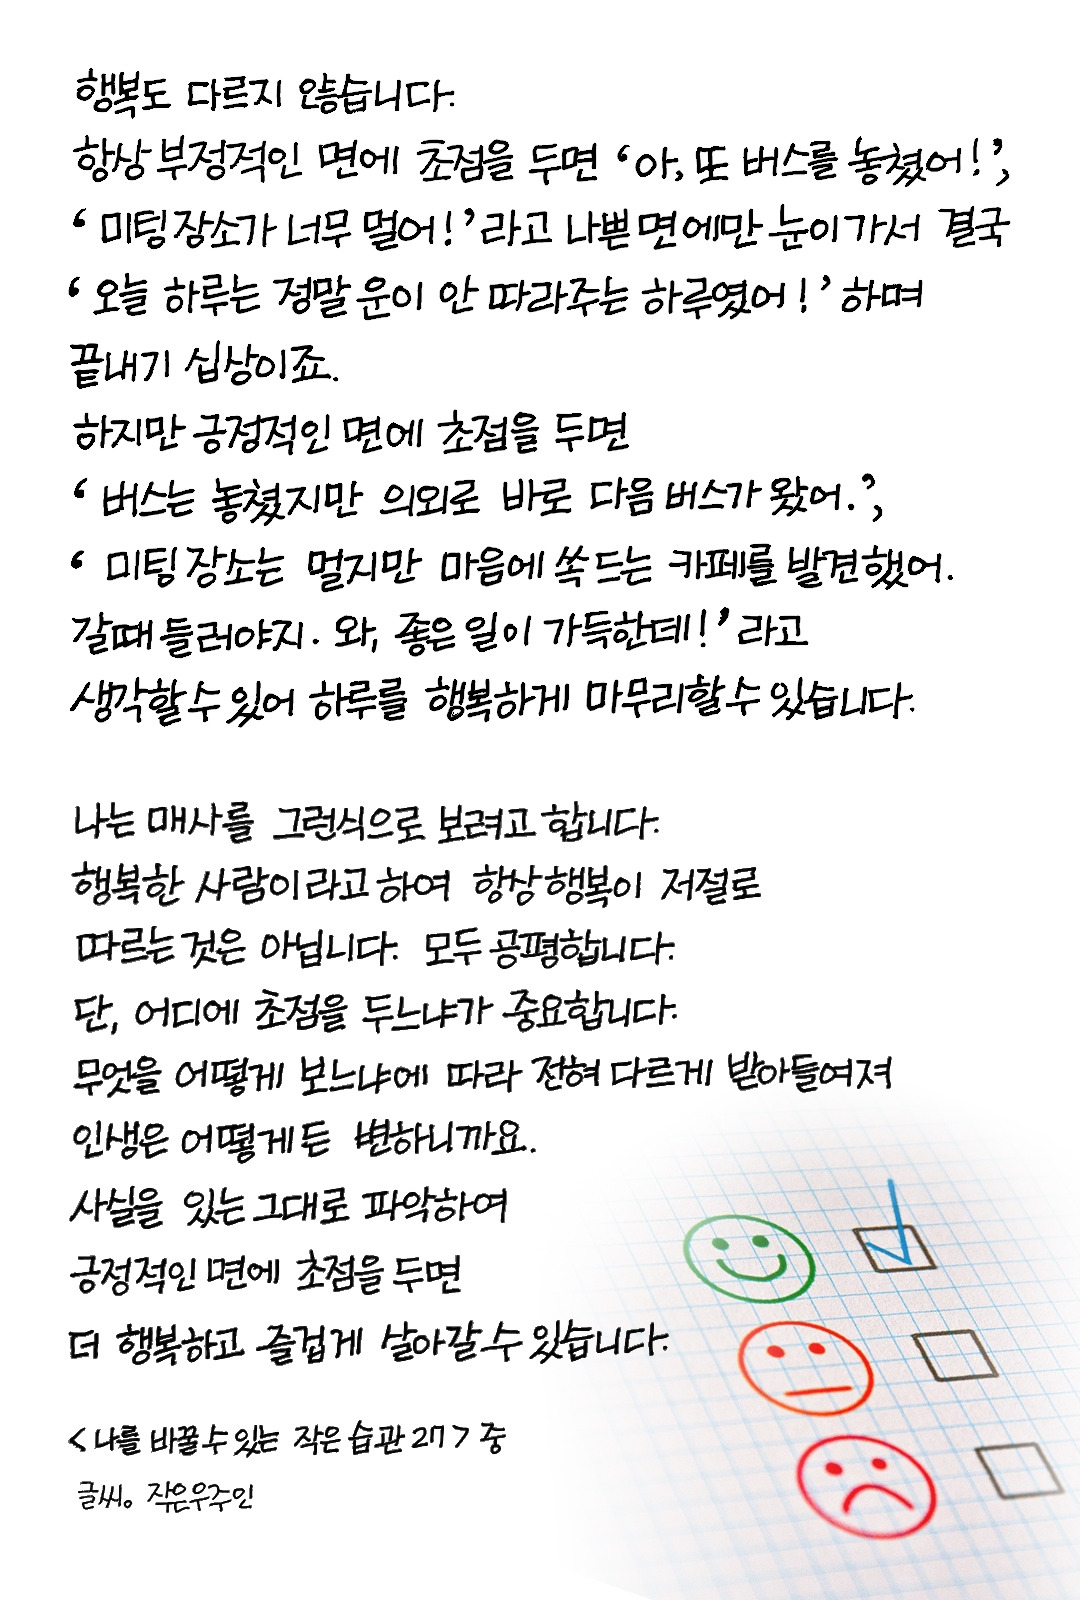 행복도 다르지 않습니다.
항상 부정적인 면에 초점을 두면 ‘아, 또 버스를 놓쳤어!’,
‘미팅장소가 너무 멀어!’라고 나쁜면에만 눈이가서 결국
‘오늘 하루는 정말 운이 안 따라주는 하루였어!’하며
끝내기 십상이죠.
하지만 긍정적인 면에 초점을 두면
‘버스는 놓쳤지만 의외로 바로 다음 버스가 왔어.’,
‘미팅장소는 멀지만 마음에 쏙 드는 카페를 발견했어.
갈때 들러야지. 와, 좋은 일이 가득한데!’라고
생각할 수 있어 하루를 행복하게 마무리할 수 있습니다.
나는 매사를 그런식으로 보려고 합니다.
행복한 사람이라고 하여 항상 행복이 저절로
따르는 것은 아닙니다. 모두 공평합니다.
단, 어디에 초점을 두느냐가 중요합니다.
무엇을 어떻게 보느냐에 따라 전혀 다르게 받아들여져
인생은 어떻게든 변하니까요.
사실을 있는 그대로 파악하여
긍정적인 면에 초점을 두면
더 행복하고 즐겁게 살아갈 수 있습니다.
<나를 바꿀 수 있는 작은 습관 27> 중
글씨. 작은우주인